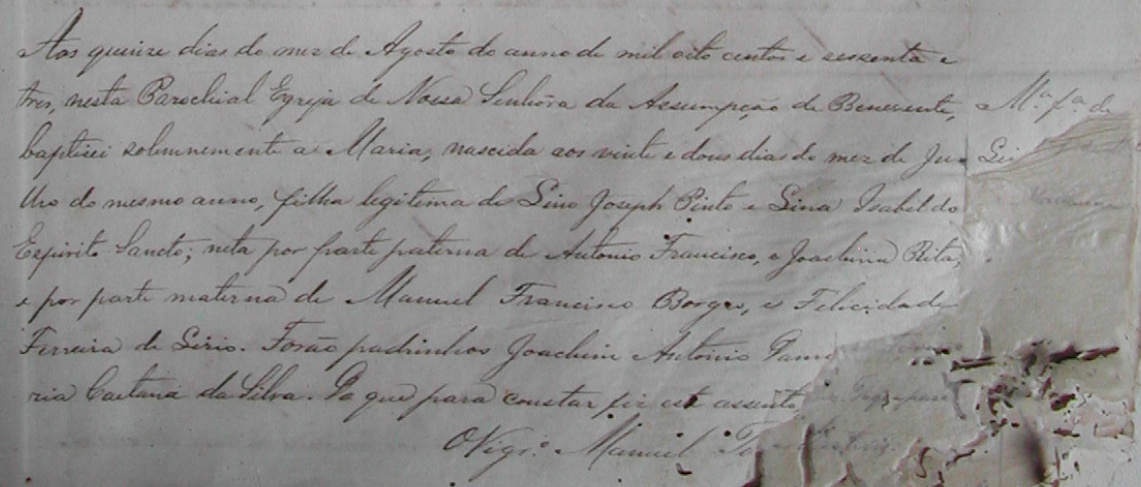 Aos quinze dias do mez de Agosto do anno de mil oito centos e sessenta e
tres, nesta Parochial Egreja de Nossa Senhôra da Assumpção de Benevente, Mª fª de
baptisei solemnemente a Maria, nascida aos vinte e dous dias do mez de Ju-
lho do mesmo anno, filha legitima de Lino Joseph Pinto e Lina Isabel do
Espirito Sancto; neta por parte paterna de Antonio Francisco, e Joachina Rita,
e por parte materna de Manuel Francisco Borges, e Felicidade
Ferreira de Lirio. Forão padrinhos Joachim Antonio
ria Caetana da Silva. Do que para constar fiz este assento
O Vigrº Manuel